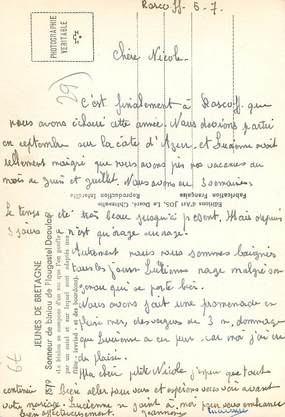 Roscoff 6-7.
PHOTOGRAPHIE
VERITABLE
Chère Nicole
(29)
C'est finalement à Roscoff que
nous avons échoué cette année. Nous devions partir
en septembre sur la côte d'Azur et Lucienne avait
tellement maigri que nous avons pris nos vacances au
mois de Juin et Juillet. Nous avons eu 3 semaines
Le temps a été très beau jusqu'à présent, Mais depuis
3 jours ce n'est qu'orage sur orage.
Autrement nous nous sommes baignées
tous les jours Lucienne nage malgré son
genou qui se porte bien.
Nous avons fait une promenade en
pleine mer, des vagues de 3 m, dommage
que Lucienne a eu peur car moi j'ai eu
du plaisir.
Ma chère petite Nicole j'espère que tout
continue à bien aller pour vous et espérons vous voir avant
votre mariage. Lucienne se joint à moi pour vous embrasser
bien affectueusement.
JEUNES DE BRETAGNE
Sonneur de biniou de Plougastel Daoulas
1579
67
Editions d'Art JOS Le Doaré Châteaulin
Reproduction Interdite
Fabrication Française